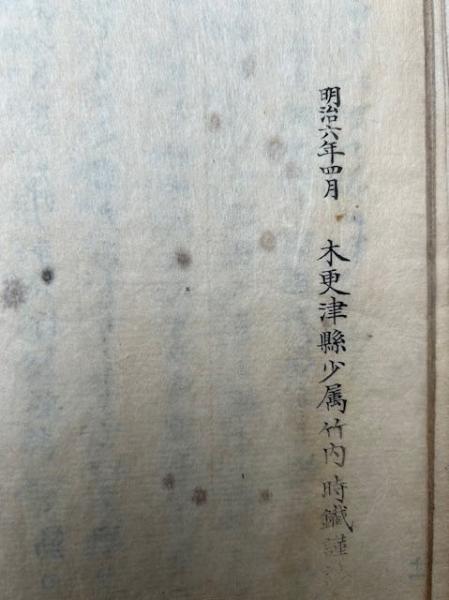 明治六年四月 木更津縣少属竹内時鐵謹